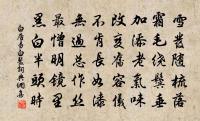 雪髮隨梳落
霜毛繞鬢垂
加添老氣味
改變舊容儀
不肯長如漆
無過總作絲
最憎明鏡里
黑白半頭時